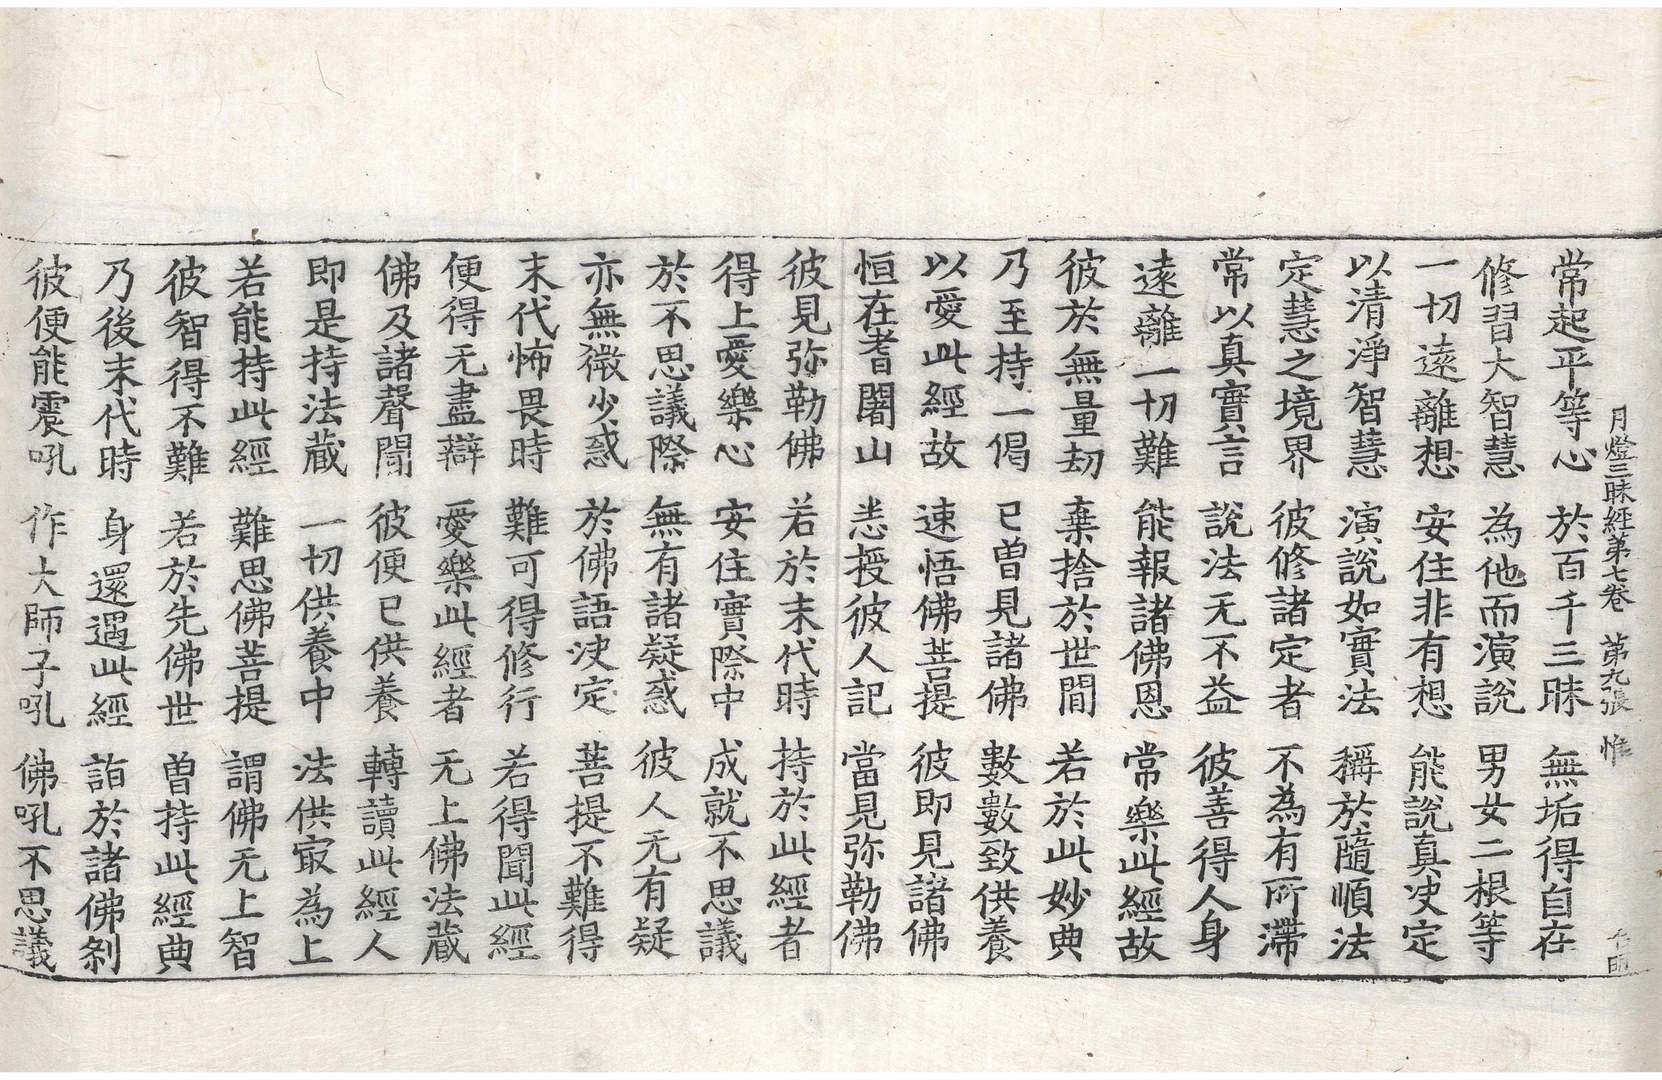 月燈三昧經第七卷　第九張　惟
常起平等心　於百千三昧　無垢得自在
修習大智慧　為他而演說　男女二根等
一切遠離想　安住非有想　能說真決定
以清淨智慧　演說如實法　稱於隨順法
定慧之境界　彼修諸定者　不為有所滯
常以真實言　說法无不益　彼善得人身
遠離一切難　能報諸佛恩　常樂此經故
彼於無量劫　棄捨於世間　若於此妙典
乃至持一偈　已曾見諸佛　數數致供養
以愛此經故　速悟佛菩提　彼即見諸佛
恒在耆闍山　悉授彼人記　當見弥勒佛
彼見弥勒佛　若於末代時　持於此經者
得上愛樂心　安住實際中　成就不思議
於不思議際　無有諸疑惑　彼人无有疑
亦無微少惑　於佛語決定　菩提不難得
末代怖畏時　難可得修行　若得聞此經
便得无盡辯　愛樂此經者　无上佛法藏
佛及諸聲聞　彼便已供養　轉讀此經人
即是持法藏　一切供養中　法供㝡為上
若能持此經　難思佛菩提　謂佛无上智
彼智得不難　若於先佛世　曾持此經典
乃後末代時　身還遇此經　詣於諸佛剎
彼便能震吼　作大師子吼　佛吼不思議